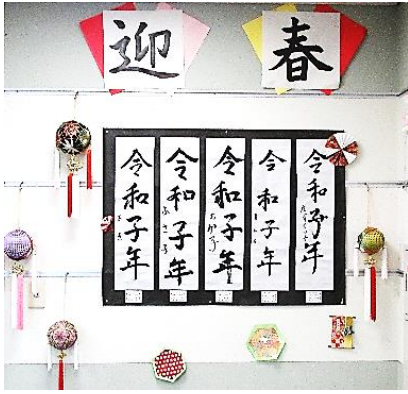 迎春
令和子年
令和子年
令和子年
令和子年
令和子年